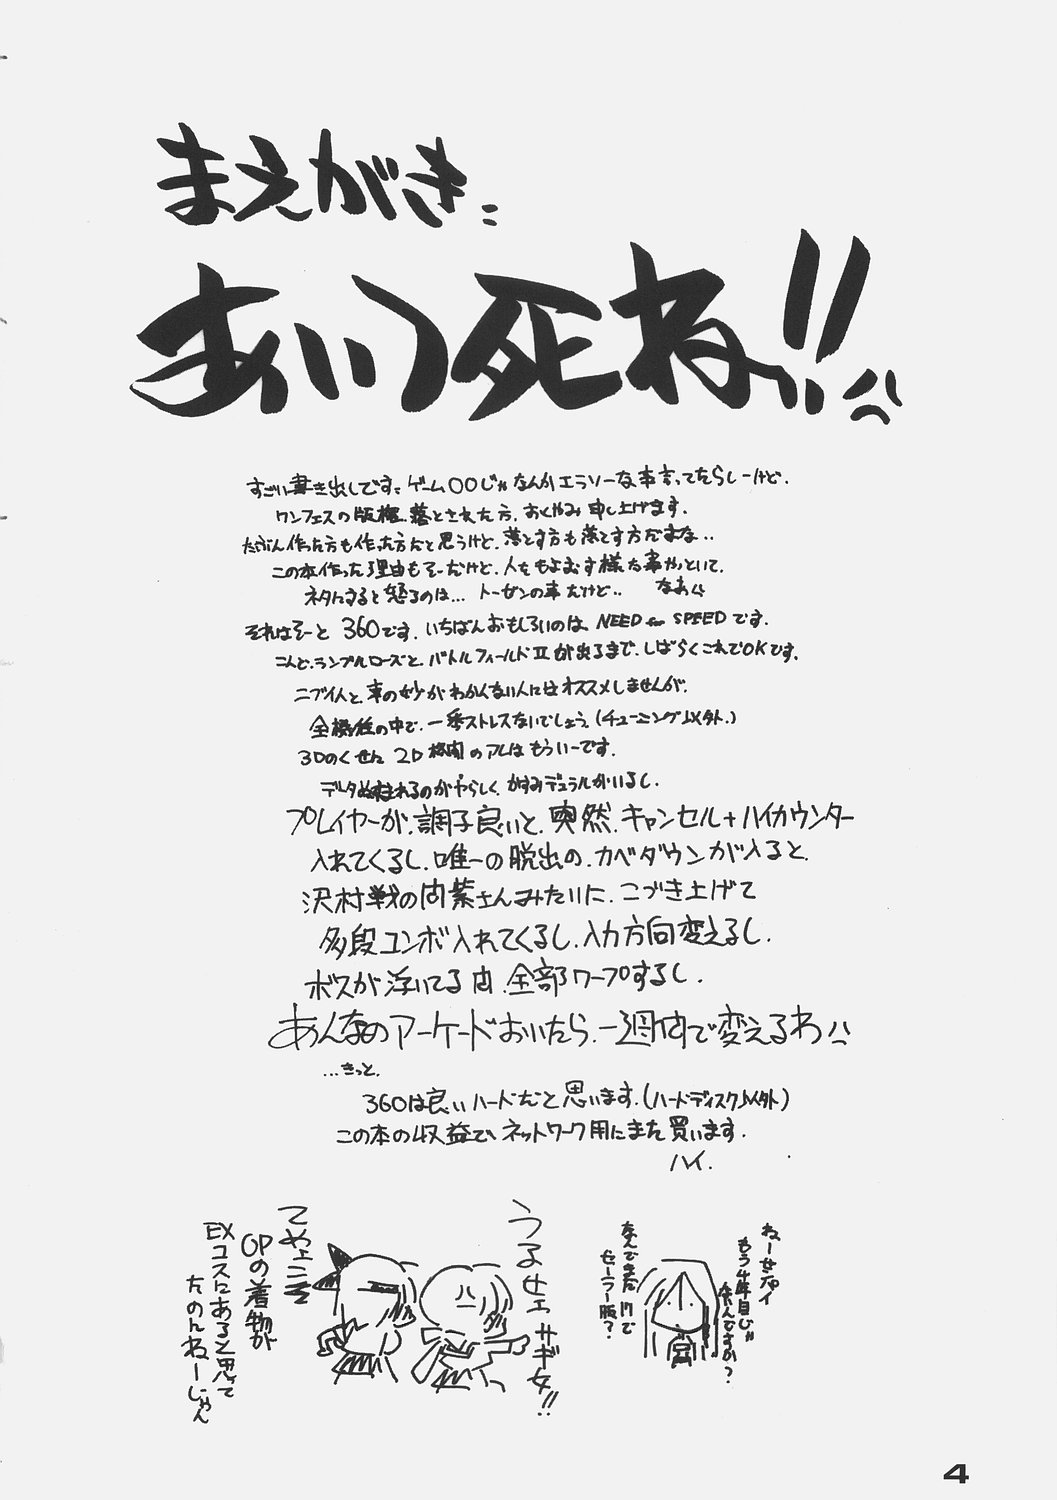 まえがき、
あいつ死ね!!
すごい書き出しです。ゲーム〇〇じゃなんかエラソーな事言ってたらしーけど、
ワンフェスの版権落とされた方、おくやみ申し上げます。
たぶん作った方も作った方だと思うけど、落とす方も落とす方だまな‥
この本作った理由もそーだけど、人をもよおす様な事やっといて、
ネタにすると怒るのは… トーゼンの事だけど‥ なあ
それはそーと 360です。いちばんおもしろいのは、NEED for SPEEDです。
こんど、ランブルローズと、バトルフィールドIIが出るまで、しばらくこれでOKです。
ニブイ人と、車の妙がわかんない人にはオススメしませんが、
全機種の中で、一番ストレスないでしょう。(チューニング以外。)
3Dのくせに 2D格闘のアレはもういーです。
データぬすまれるのがやらしく、かすみデュラルがいるし、
プレイヤーが、調子良いと、突然、キャンセル+ハイカウンター
入れてくるし、唯一の脱出の、カベダウンが入ると、
沢村戦の間柴さんみたいに、こづき上げて
多段コンボ入れてくるし、入力方向変えるし、
ボスが浮いてる間、全部ワープするし、
あんなのアーケードおいたら、一週間で変えるわ
…きっと。
360は良いハードだと思います。(ハードディスク以外)
この本の収益で、ネットワーク用にまた買います。
ハイ。
ねーせんぱイ
もう4年目び
なんですか?
なんでまだ17で
セーラー服?
うるせェサギ女!!
てやェ
OPの着物が
EXコスにあると思って
たのんねーじゃん
4